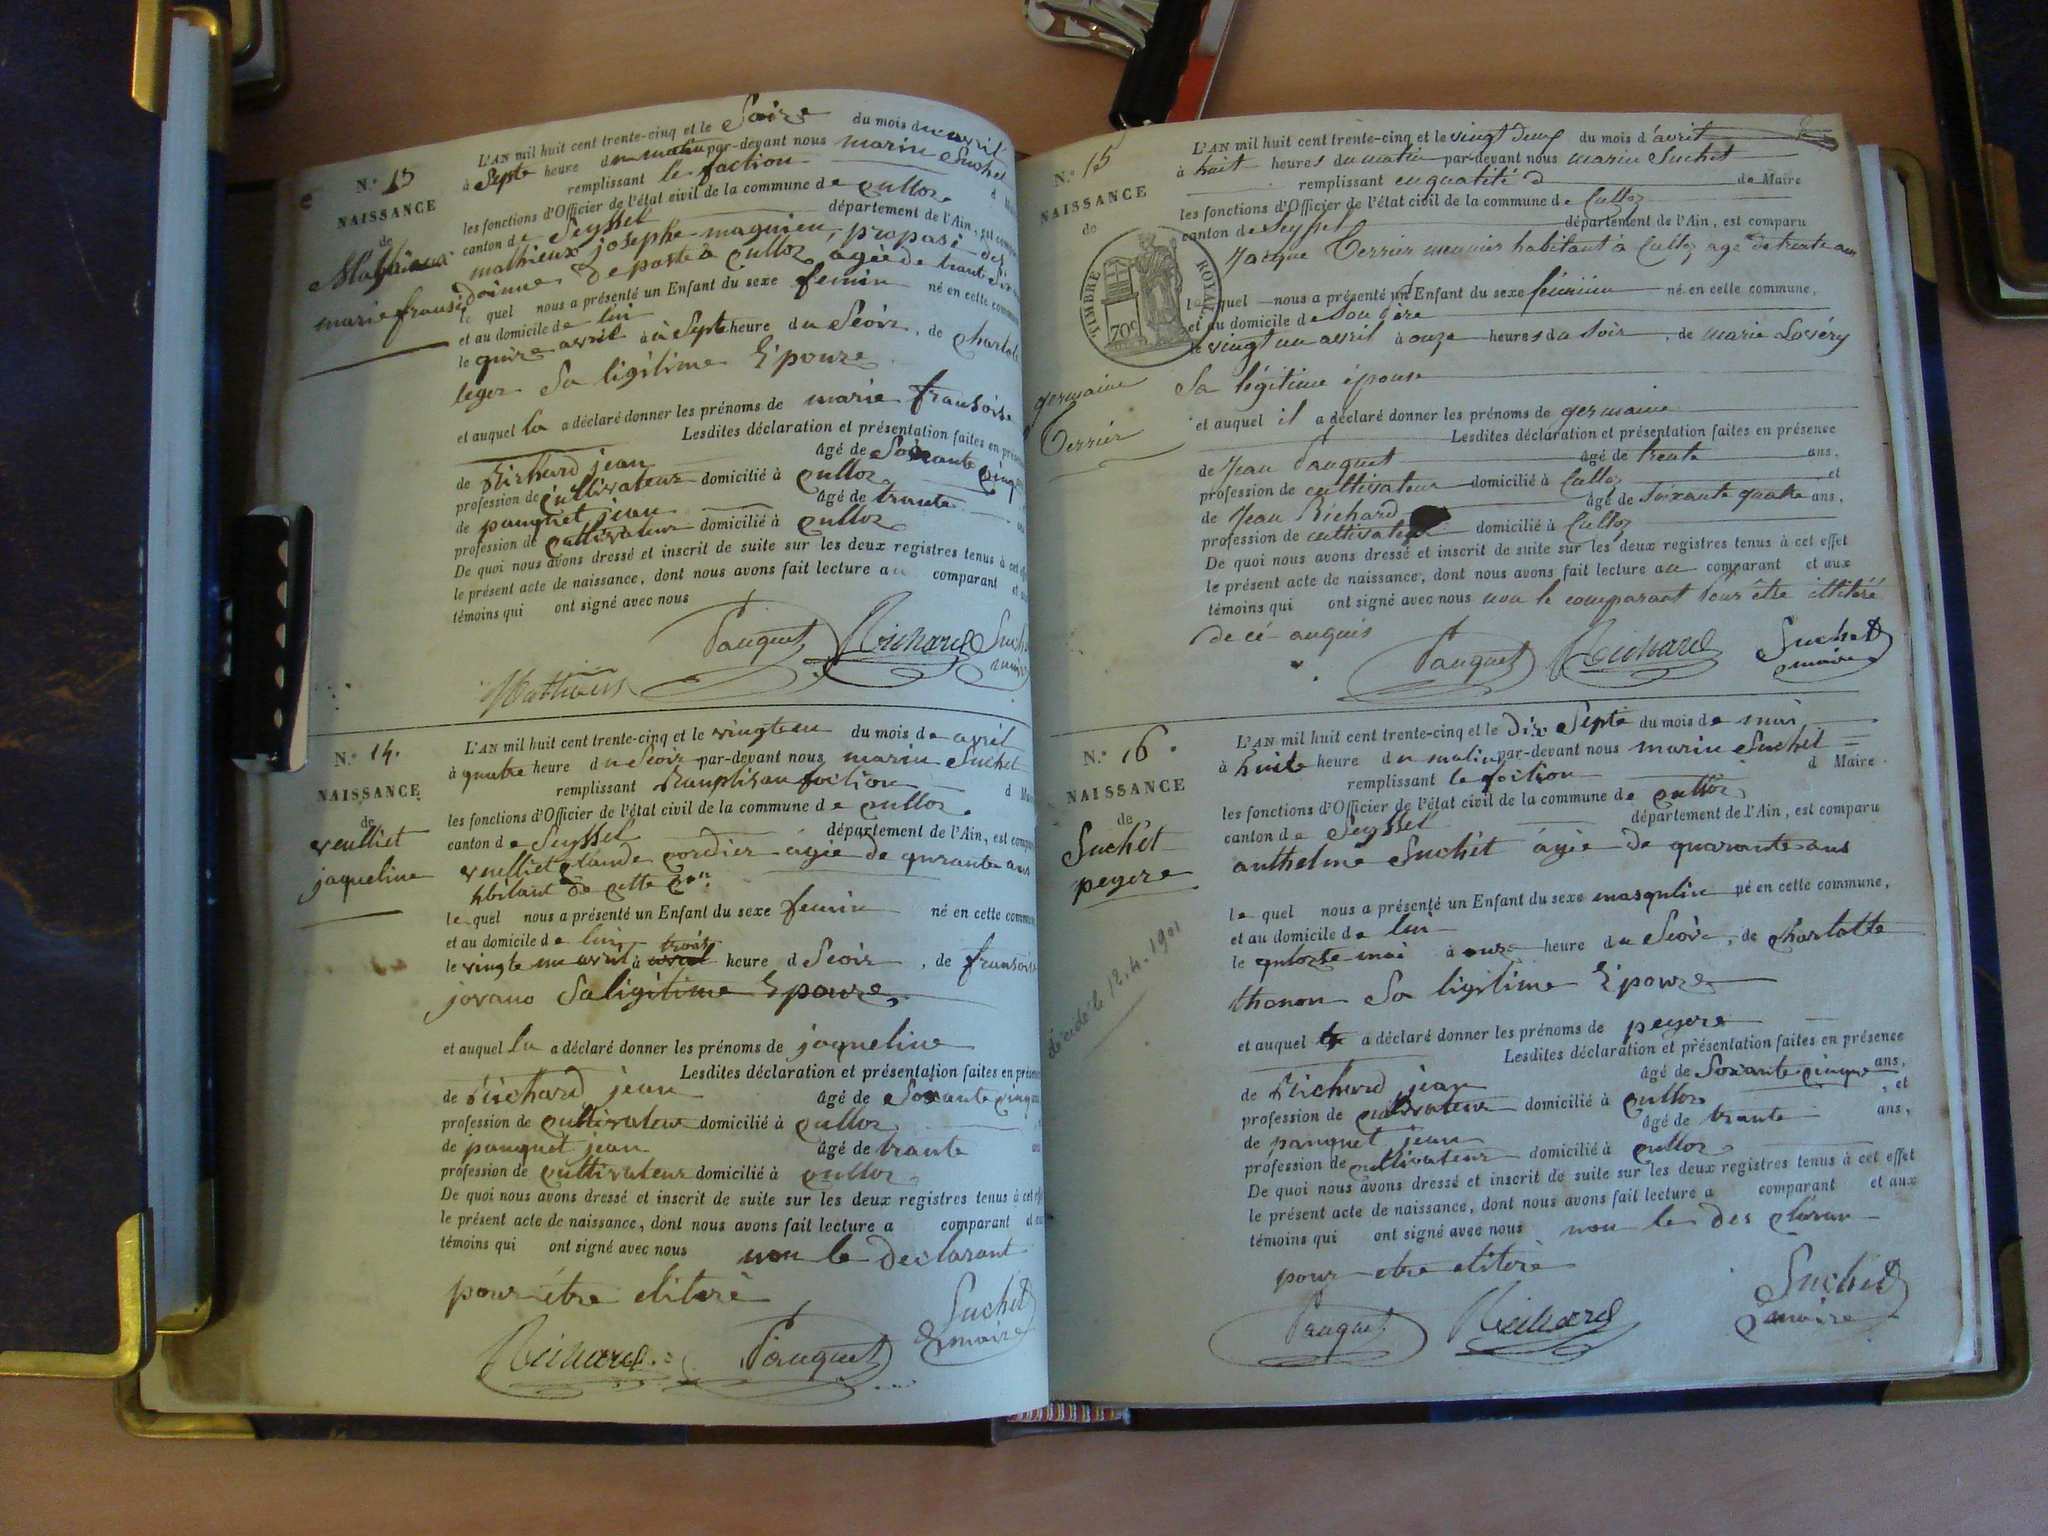 N.º 13
NAISSANCE
de
Mathieux
marie fransoi
L'AN mil huit cent trente-cinq et le Saize du mois d avril
à Septe heure du matin par-devant nous marin Suchet
remplissant le faction d
les fonctions d'Officier de l'état civil de la commune de Culloz
canton de Seyssel département de l'Ain, est
mathieux josephe
de poste à Culloz, agée de trante Six
le quel nous a présenté un Enfant du sexe feminin né en cette commune
et au domicile de lui
le quinze avril à Septe heure du Seoir, de charlote
leger Sa ligitime Epouze
et auquel la a déclaré donner les prénoms de marie fransoise
Lesdites déclaration et présentation faites en
de Richard jean âgé de Soixante cinq
profession de Cultivateur domicilié à Culloz
de pauquet jean âgé de trante
profession de Cultivateur domicilié à Culloz
De quoi nous avons dressé et inscrit de suite sur les deux registres tenus à cet
le présent acte de naissance, dont nous avons fait lecture au comparant et
témoins qui ont signé avec nous
Pauquet Richard
Mathieux
N.º 14.
NAISSANCE
de
veulliet
jaqueline
L'AN mil huit cent trente-cinq et le vingteun du mois de avril
à quatre heure du Seoir par-devant nous marin Suchet
remplissant d
les fonctions d'Officier de l'état civil de la commune de Culloz
canton de Seyssel département de l'Ain, est
veulliet claude cordier agée de qurante ans
hbitant de cette
le quel nous a présenté un Enfant du sexe feminin né en cette
et au domicile de lui
le vingte un avril à trois heure d Seoir, de fransoise
jovano Sa ligitime Epouze
et auquel la a déclaré donner les prénoms de jaqueline
Lesdites déclaration et présentation faites en
de Richard jean âgé de Soxante cinq
profession de Cultivateur domicilié à Culloz
de pauquet jean âgé de trante
profession de Cultivateur domicilié à Culloz
De quoi nous avons dressé et inscrit de suite sur les deux registres tenus à cet
le présent acte de naissance, dont nous avons fait lecture a comparant et
témoins qui ont signé avec nous non le declarant
pour être elitere
Richard Pauquet Suchet maire
N.º 15
NAISSANCE
de
TIMBRE ROYAL
70c
germaine
Terrier
L'AN mil huit cent trente-cinq et le vingt deux du mois d'avril
à huit heures du matin par-devant nous marin Suchet
remplissant en quatité d de Maire
les fonctions d'Officier de l'état civil de la commune de Culloz
canton de Seyssel département de l'Ain, est comparu
Jacque Terrier meunier habitant à Culloz age de trente ans
lequel nous a présenté un Enfant du sexe féminin né en cette commune,
et au domicile de Son père
le vingt un avril à onze heures du Soir, de marie
Sa légitime épouse
et auquel il a déclaré donner les prénoms de germaine
Lesdites déclaration et présentation faites en présence
de Jean Pauquet âgé de trente ans,
profession de cultivateur domicilié à Culloz et
de Jean Richard âgé de Soixante quatre ans,
profession de cultivateur domicilié à Culloz
De quoi nous avons dressé et inscrit de suite sur les deux registres tenus à cet effet
le présent acte de naissance, dont nous avons fait lecture au comparant et aux
témoins qui ont signé avec nous non le comparant pour être illitéré
de cé
Pauquet Richard Suchet maire
N.º 16.
NAISSANCE
de
Suchet
peyere
décédé le 12.4.1901
L'AN mil huit cent trente-cinq et le Dix Septe du mois de mai
à huite heure du matin par-devant nous marin Suchet
remplissant le faction d Maire
les fonctions d'Officier de l'état civil de la commune de Culloz
canton de Seyssel département de l'Ain, est comparu
anthelme Suchet agée de quarante ans
le quel nous a présenté un Enfant du sexe masqulin né en cette commune,
et au domicile de lui
le quatorse mai à onze heure du Seoir, de Charlotte
thonon Sa ligitime Epouze
et auquel a déclaré donner les prénoms de peyere
Lesdites déclaration et présentation faites en présence
de Richard jean âgé de Soxante cinque ans,
profession de Cultivateur domicilié à Culloz, et
de pauquet jean âgé de trante ans,
profession de Cultivateur domicilié à Culloz
De quoi nous avons dressé et inscrit de suite sur les deux registres tenus à cet effet
le présent acte de naissance, dont nous avons fait lecture a comparant et aux
témoins qui ont signé avec nous non le des claran
pour etre elitere
Pauquet Richard Suchet maire